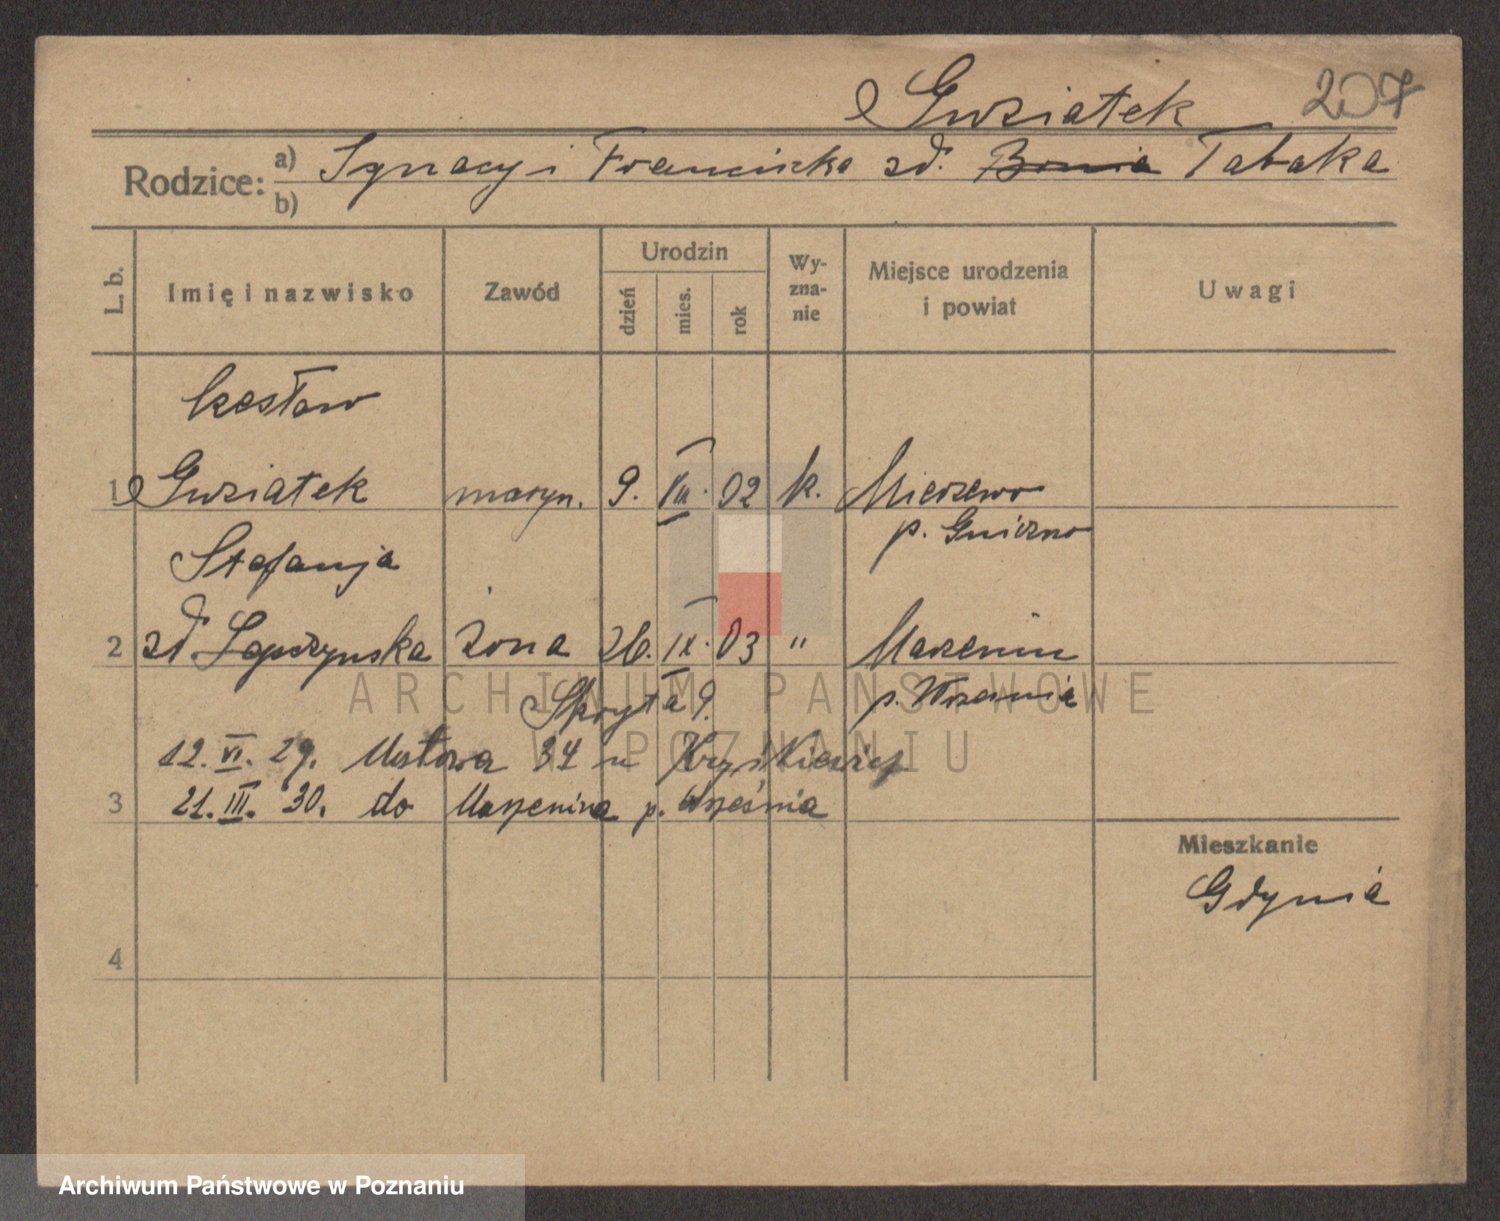 Gwziatek 207
Rodzice: a) Ignacy i Franciszka zd. Tabaka
b)
L. b. Imię i nazwisko Zawód Urodzin dzień mies. rok Wyznanie Miejsce urodzenia i powiat Uwagi
Czesław
1 Gwziatek maryn. 9. VII. 02 k. Mierzewo
p. Gniezno
Stefanja
2 zd żona 26. IX. 03 " Marzenin
p. Września
Skryta 9.
12. VI. 29. 34 u
3 21. III. 30. do Marzenina p. Września
Mieszkanie
Gdynia
4
ARCHIWUM PAŃSTWOWE
W POZNANIU
Archiwum Państwowe w Poznaniu